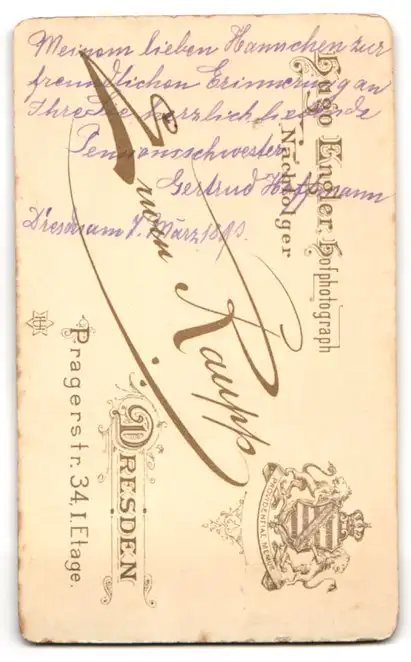 Meinem lieben Hannschen zur
freundlichen Erinnerung an
Ihre Sie herzlich liebende
Pensionsschwester
Gertrud Hoffmann
Dresden am 7. März 1893.
Hugo Engler, Hofphotograph
Nachfolger
Erwin Raupp
DRESDEN
Pragerstr. 34, I. Etage.